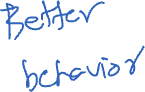 Better
behavior